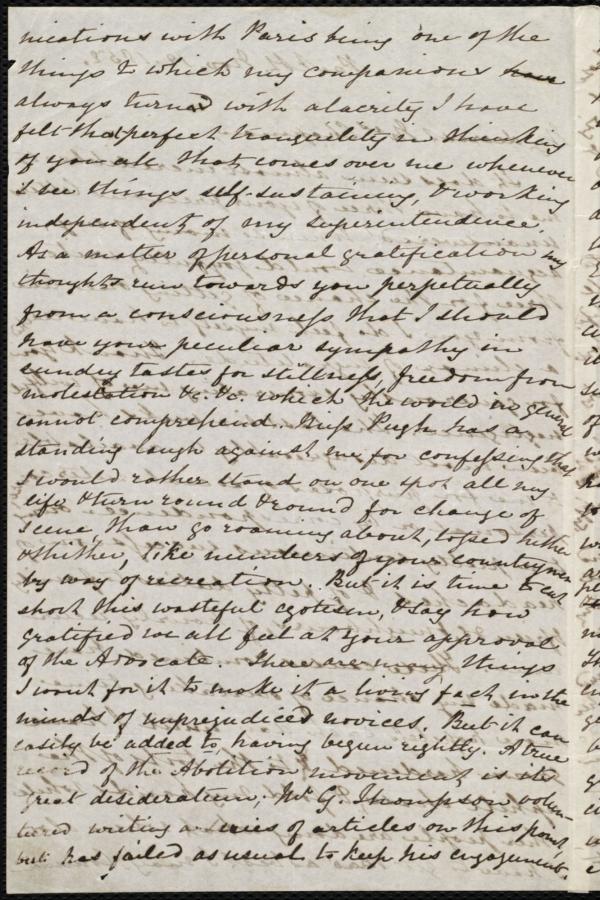 nications with Paris being one of the
things to which my companions have
always turned with alacrity I have
felt that perfect tranquility in thinking
of you all that comes over me whenever
I see things self-sustaining, & working
independent of my superintendence.
As a matter of personal gratification my
thoughts run towards you perpetually
from a consciousness that I should
have your peculiar sympathy in
sundry tastes for stillness, freedom from
molestation &c. &c. which the world in general
cannot comprehend. Miss Pugh has a
standing laugh against me for confessing that
I would rather stand on one spot all my
life & turn round & round for change of
scene, than go roaming about, tossed hither
& thither, like numbers of your countrymen
by way of recreation. But it is time to cut
short this wasteful egotism, & say how
gratified we all feel at your approval
of the Advocate. There are many things
I want for it to make it a living fact in the
minds of unprejudiced novices. But it can
easily be added to, having begun rightly. A true
record of the Abolition movement is the
great desideratum; Mr. G. Thompson volun-
teered writing a series of articles on this point,
but has failed as usual to keep his engagement.